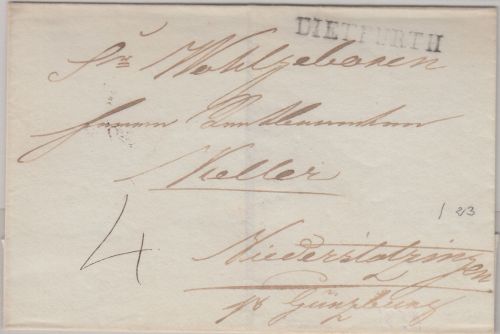 DIETFURTH
Sr Wohlgeboren
Herrn Rentbeamten
Keller
1 23
4
Niederstotzingen
pr Günzburg